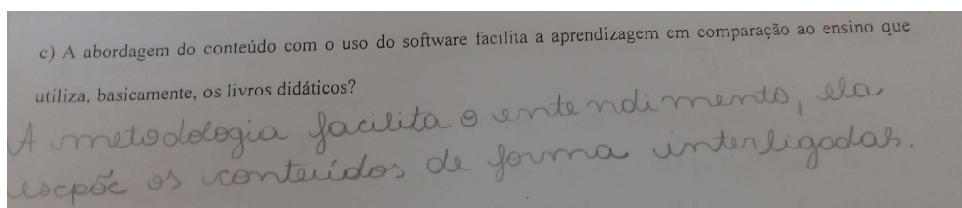 c) A abordagem do conteúdo com o uso do software facilita a aprendizagem em comparação ao ensino que
utiliza, basicamente, os livros didáticos?
A metodologia facilita o entendimento, ela
escpõe os conteúdos de forma interligadas.